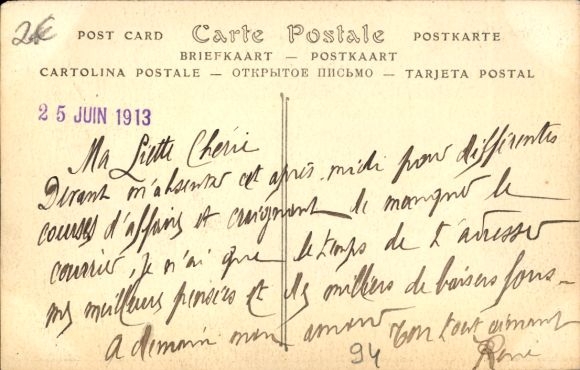 2€
POST CARD Carte Postale POSTKARTE
BRIEFKAART — POSTKAART
CARTOLINA POSTALE — ОТКРЫТОЕ ПИСЬМО — TARJETA POSTAL
25 JUIN 1913
Ma Liette Chérie
Devant m'absenter cet après-midi pour différentes
courses d'affaires et craignant de manquer le
courrier, je n'ai que le temps de t'adresser
mes meilleures pensées et des milliers de baisers fous -
A demain mon amour Ton tout aimant
94 René